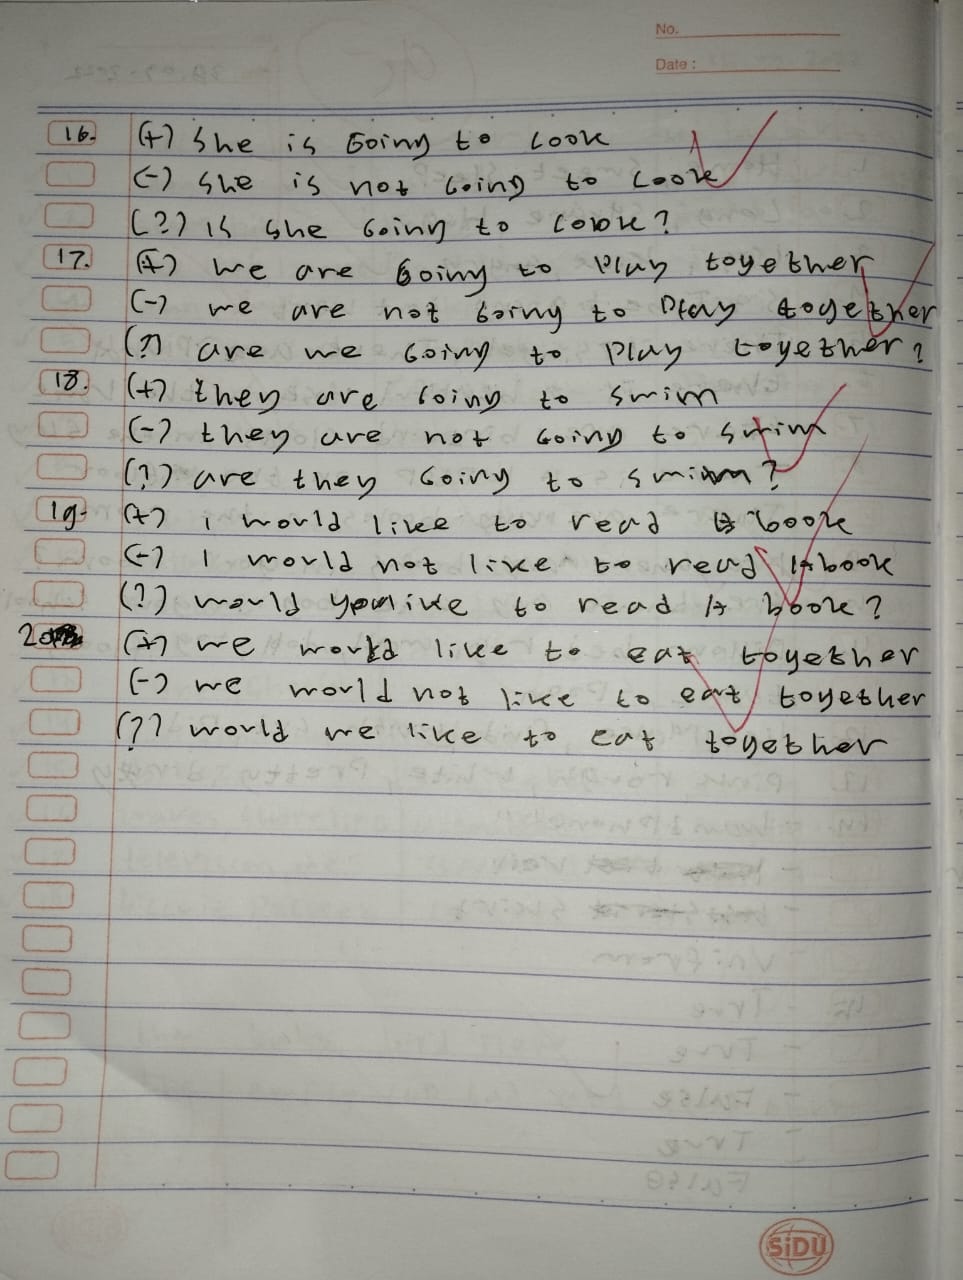 No.
Date :
16. (+) She is Going to cook
(-) She is not Going to cook
(?) is she Going to cook?
17. (+) we are Going to play together
(-) we are not Going to play together
(?) are we Going to play together?
18. (+) they are Going to swim
(-) they are not Going to swim
(?) are they Going to swim?
19. (+) i would like to read book
(-) I would not like to read A book
(?) would you like to read A book?
20 (+) we would like to eat together
(-) we would not like to eat together
(?) would we like to eat together
SiDU